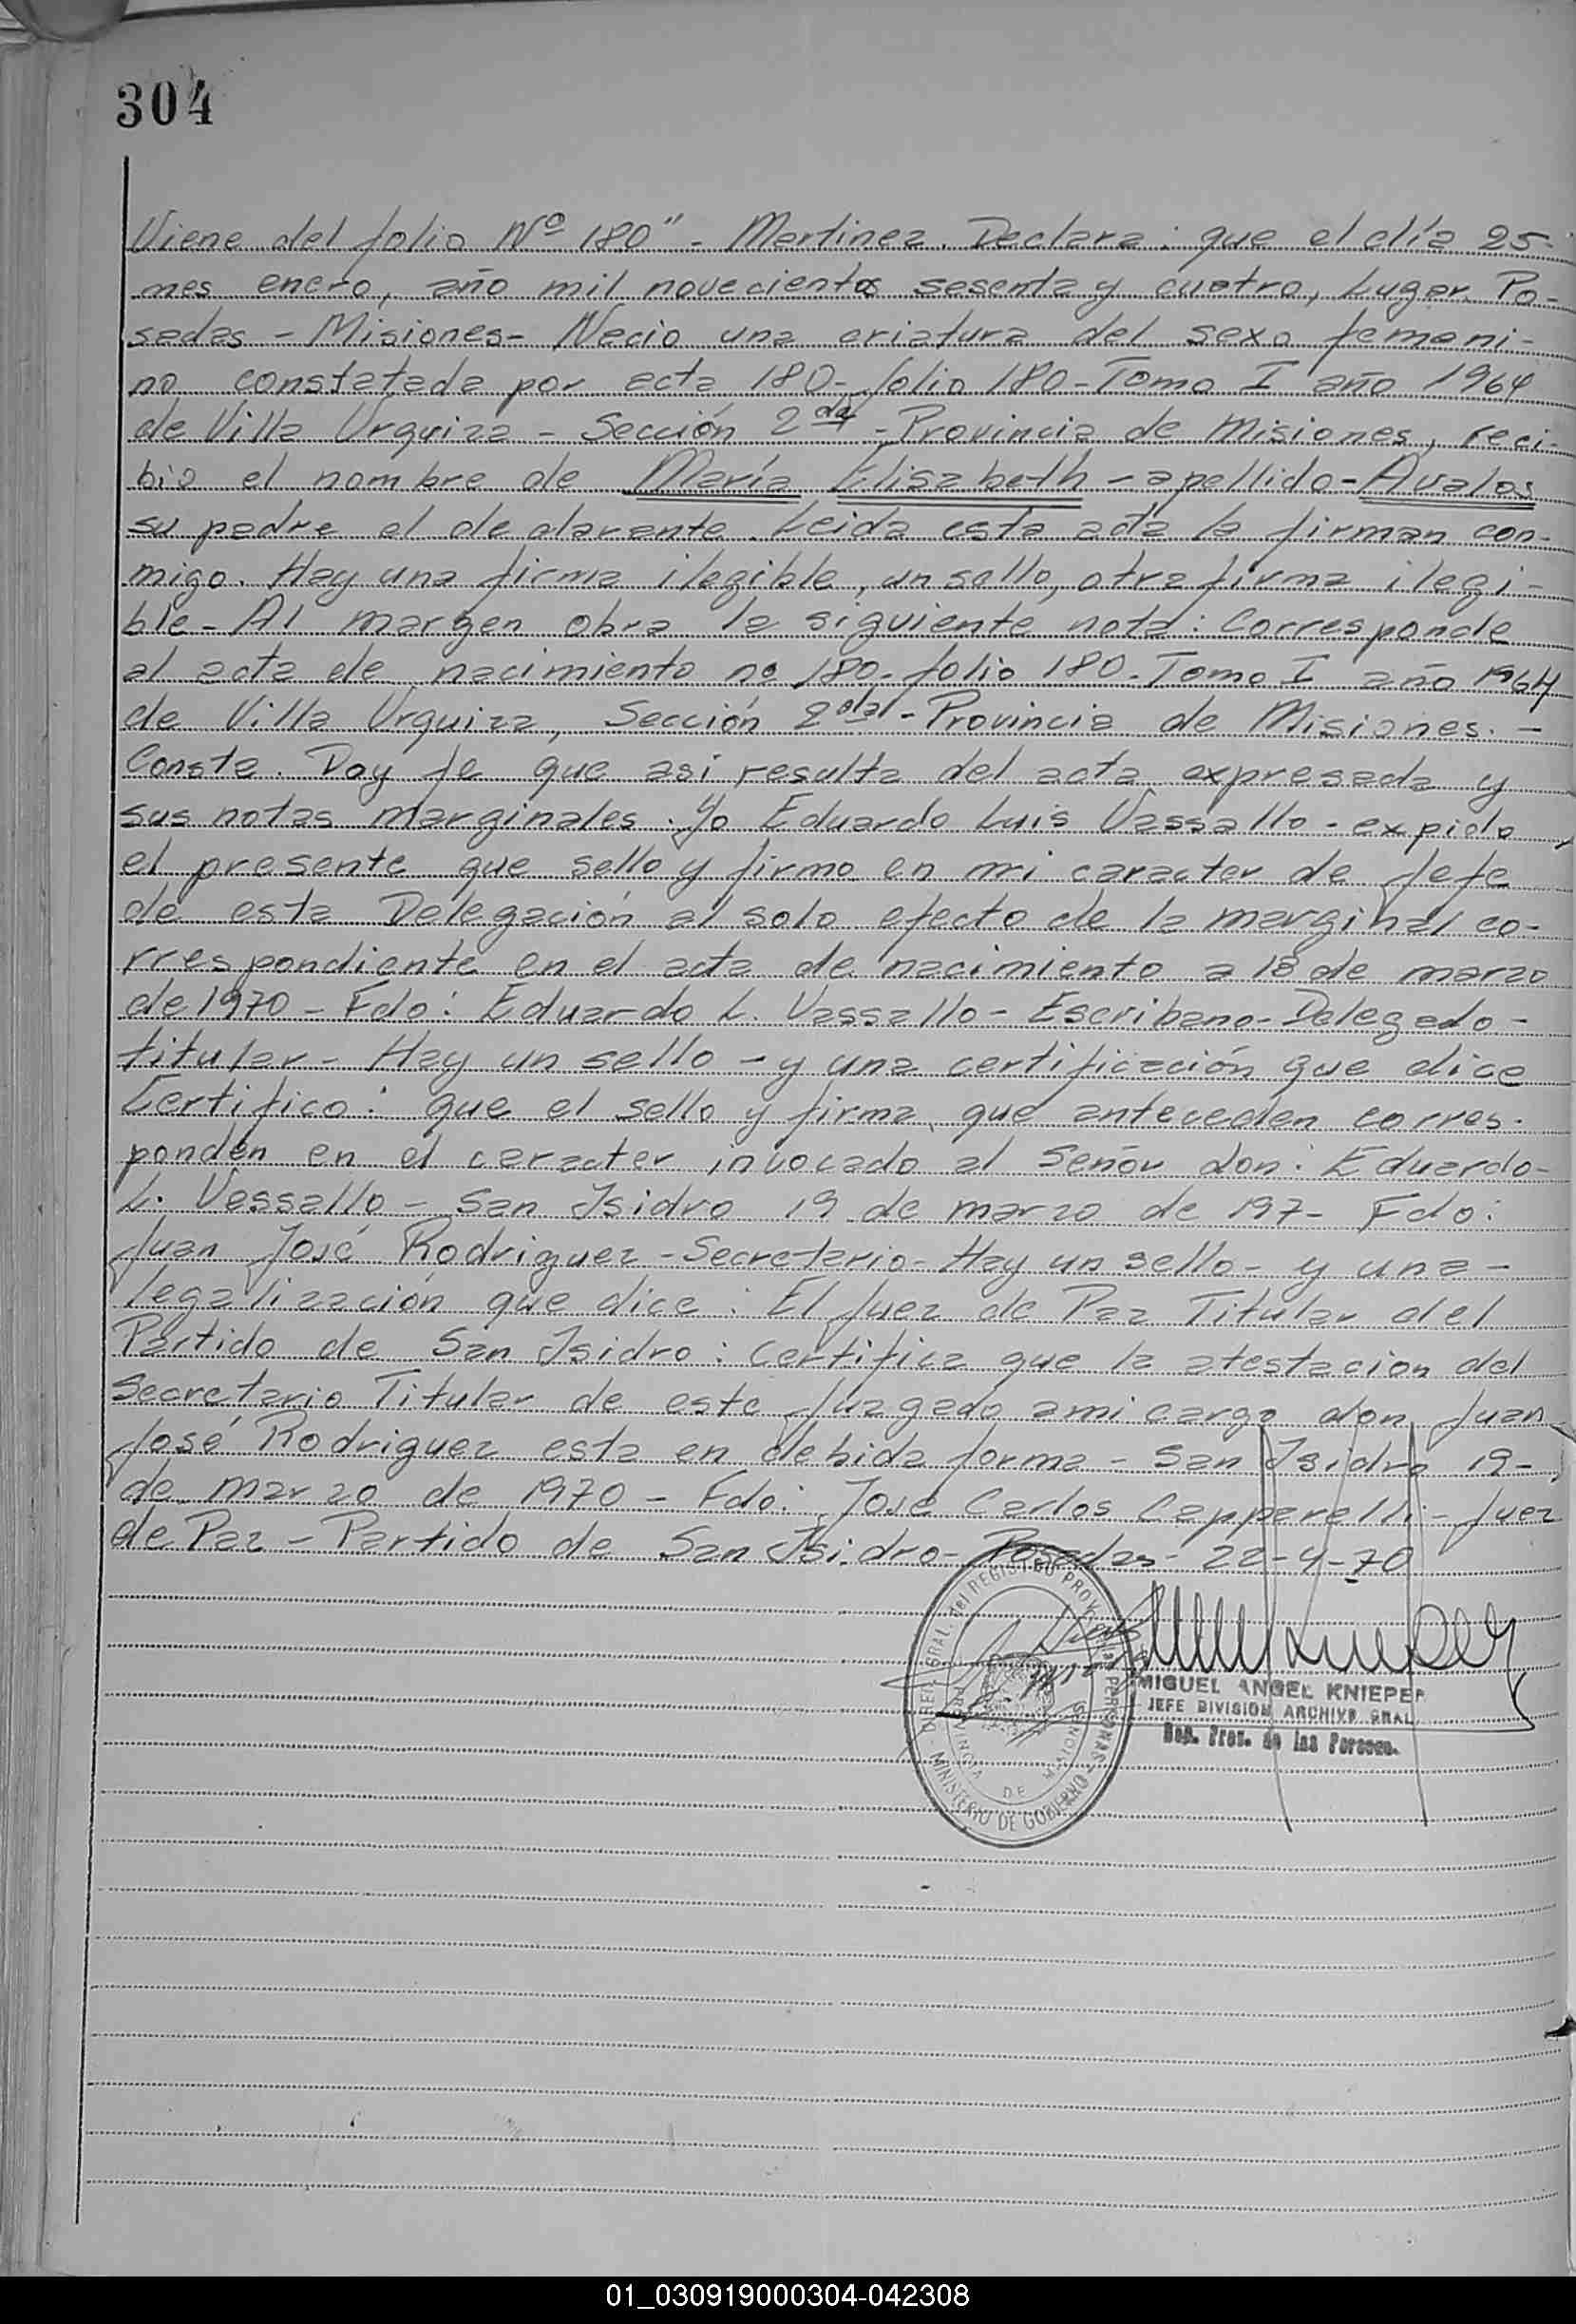 304
Viene del folio Nº 180" - Martinez. Declara: que el día 25-
mes enero, año mil novecientos sesenta y cuatro, Lugar Po-
sadas - Misiones - Nacio una criatura del sexo femeni-
no constatada por acta 180 - folio 180 - Tomo I año 1964
de Villa Urquiza - Sección 2da - Provincia de Misiones, reci-
bio el nombre de María Elisabeth - apellido - Avalos
su padre el declarante. Leida esta acta la firman con-
migo. Hay una firma ilegible, un sello, otra firma ilegi-
ble - Al margen obra la siguiente nota: Corresponde
al acta de nacimiento no 180 - folio 180 - Tomo I año 1964
de Villa Urquiza, Sección 2da - Provincia de Misiones. -
Conste. Doy fe que asi resulta del acta expresada y
sus notas marginales. Yo Eduardo Luis Vassallo - expido
el presente que sello y firmo en mi caracter de Jefe
de esta Delegación al solo efecto de la marginal co-
rrespondiente en el acta de nacimiento a 18 de marzo
de 1970 - Fdo: Eduardo L. Vassallo - Escribano - Delegado -
titular - Hay un sello - y una certificación que dice
Certifico: que el sello y firma que anteceden corres-
ponden en el caracter invocado al Señor don: Eduardo -
L. Vassallo - San Isidro 19 de marzo de 197- Fdo:
Juan José Rodriguez - Secretario - Hay un sello - y una -
legalización que dice: El Juez de Paz Titular del
Partido de San Isidro: Certifica que la atestacion del
Secretario Titular de este Juzgado a mi cargo don Juan
José Rodriguez esta en debida forma - San Isidro 19 -
de marzo de 1970 - Fdo: José Carlos Capparelli - Juez
de Paz - Partido de San Isidro - Posadas - 22-4-70
DIREC. GRAL. del REGISTRO PROV. PERSONAS
PROVINCIA DE MISIONES
MINISTERIO DE GOBIERNO
MIGUEL ANGEL KNIEPER
JEFE DIVISION ARCHIVO GRAL
Rep. Prov. de las Personas.
01_030919000304-042308